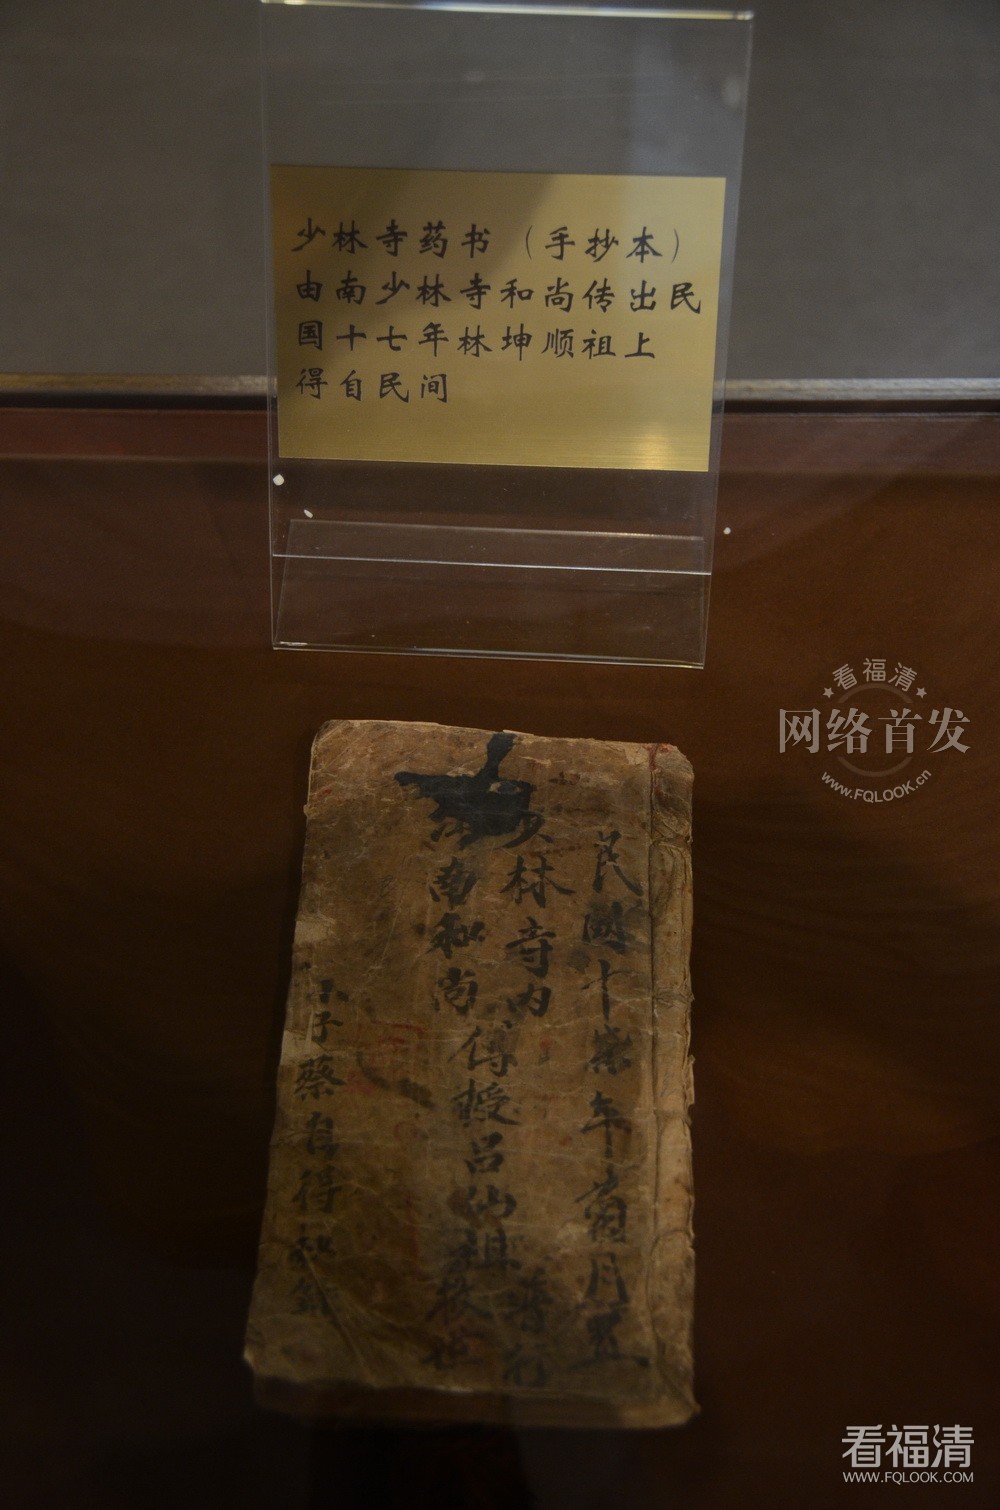 少林寺药书（手抄本）
由南少林寺和尚传出民
国十七年林坤顺祖上
得自民间
看福清
网络首发
www.FQLOOK.cn
民國十柒年 月置
少林寺内
南和尚
傳授吕仙祖
普行
救世
小子蔡自得
看福清
WWW.FQLOOK.COM